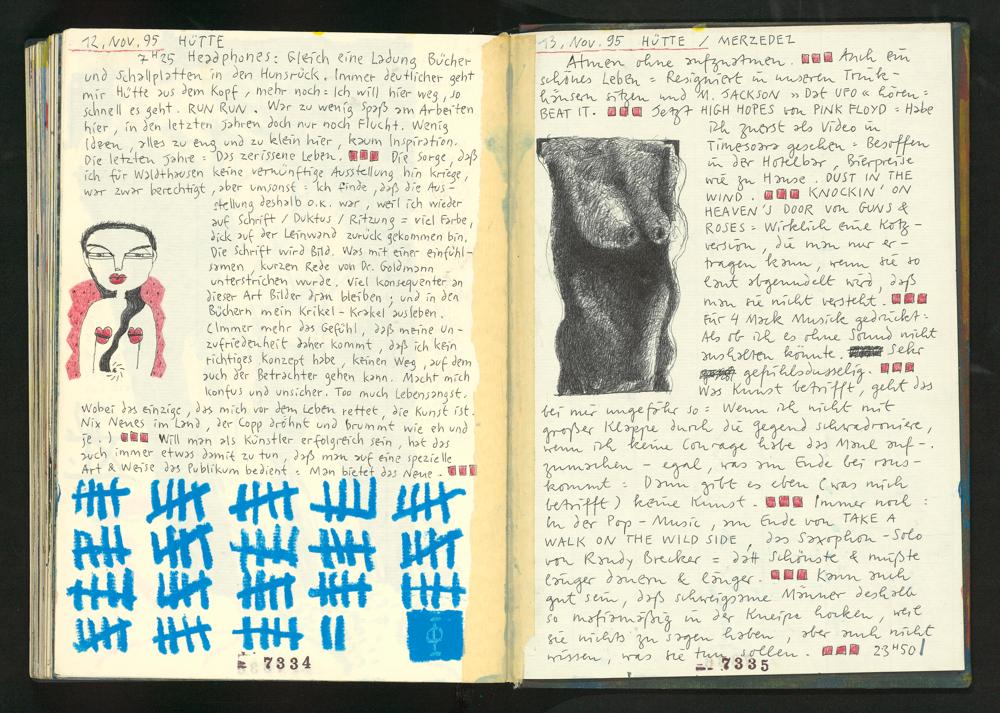 12. NOV. 95 HÜTTE
7H25 Headphones: Gleich eine Ladung Bücher
und Schallplatten in den Hunsrück. Immer deutlicher geht
mir Hütte aus dem Kopf, mehr noch: Ich will hier weg, so
schnell es geht. RUN RUN. War zu wenig Spaß am Arbeiten
hier, in den letzten Jahren doch nur noch Flucht. Wenig
Ideen, alles zu eng und zu klein hier, kaum Inspiration.
Die letzten Jahre = Das zerissene Leben. Die Sorge, daß
ich für Waldthausen keine vernünftige Ausstellung hin kriege,
war zwar berechtigt, aber umsonst: Ich finde, daß die Aus-
stellung deshalb o.k. war, weil ich wieder
auf Schrift / Duktus / Ritzung = viel Farbe,
dick auf der Leinwand zurück gekommen bin.
Die Schrift wird Bild. Was mit einer einfühl-
samen, kurzen Rede von Dr. Goldmann
unterstrichen wurde. Viel konsequenter an
dieser Art Bilder dran bleiben; und in den
Büchern mein Krikel-Krakel ausleben.
(Immer mehr das Gefühl, daß meine Un-
zufriedenheit daher kommt, daß ich kein
richtiges Konzept habe, keinen Weg, auf dem
auch der Betrachter gehen kann. Macht mich
konfus und unsicher. Too much Lebensangst.
Wobei das einzige, das mich vor dem Leben rettet, die Kunst ist.
Nix Neues im Land, der Copp dröhnt und Brummt wie eh und
je.) Will man als Künstler erfolgreich sein, hat das
auch immer etwas damit zu tun, daß man auf eine spezielle
Art & Weise das Publikum bedient = Man bietet das Neue.
7334
13. NOV. 95 HÜTTE / MERZEDEZ
Atmen ohne aufzuatmen. Auch ein
schönes Leben = Resigniert in unseren Trink-
häusern sitzen und M. JACKSON » Dat UFO « hören =
BEAT IT. Jetzt HIGH HOPES von PINK FLOYD = Habe
ich zuerst als Video in
Timesoara gesehen = Besoffen
in der Hotelbar, Bierpreise
wie zu Hause. DUST IN THE
WIND. KNOCKIN' ON
HEAVEN'S DOOR von GUNS &
ROSES = Wirklich eine Kotz-
version, die man nur er-
tragen kann, wenn sie so
laut abgenudelt wird, daß
man sie nicht versteht.
Für 4 Mack Musick gedrückt:
Als ob ich es ohne Sound nicht
aushalten könnte. Sehr
gefühlsdusselig.
Was Kunst betrifft, geht das
bei mir ungefähr so = Wenn ich nicht mit
großer Klappe durch die gegend schwadroniere,
wenn ich keine Courage habe das Maul auf-
zumachen - egal, was am Ende bei raus-
kommt = Dann gibt es eben (was mich
betrifft) keine Kunst. Immer noch:
In der Pop-Music, am Ende von TAKE A
WALK ON THE WILD SIDE, das Saxophon-Solo
von Randy Brecker = datt schönste & müßte
länger dauern & länger. Kann auch
gut sein, daß schweigsame Männer deshalb
so mafiamäßig in der Kneipe hocken, weil
sie nichts zu sagen haben, aber auch nicht
wissen, was sie tun sollen. 23H50
7335